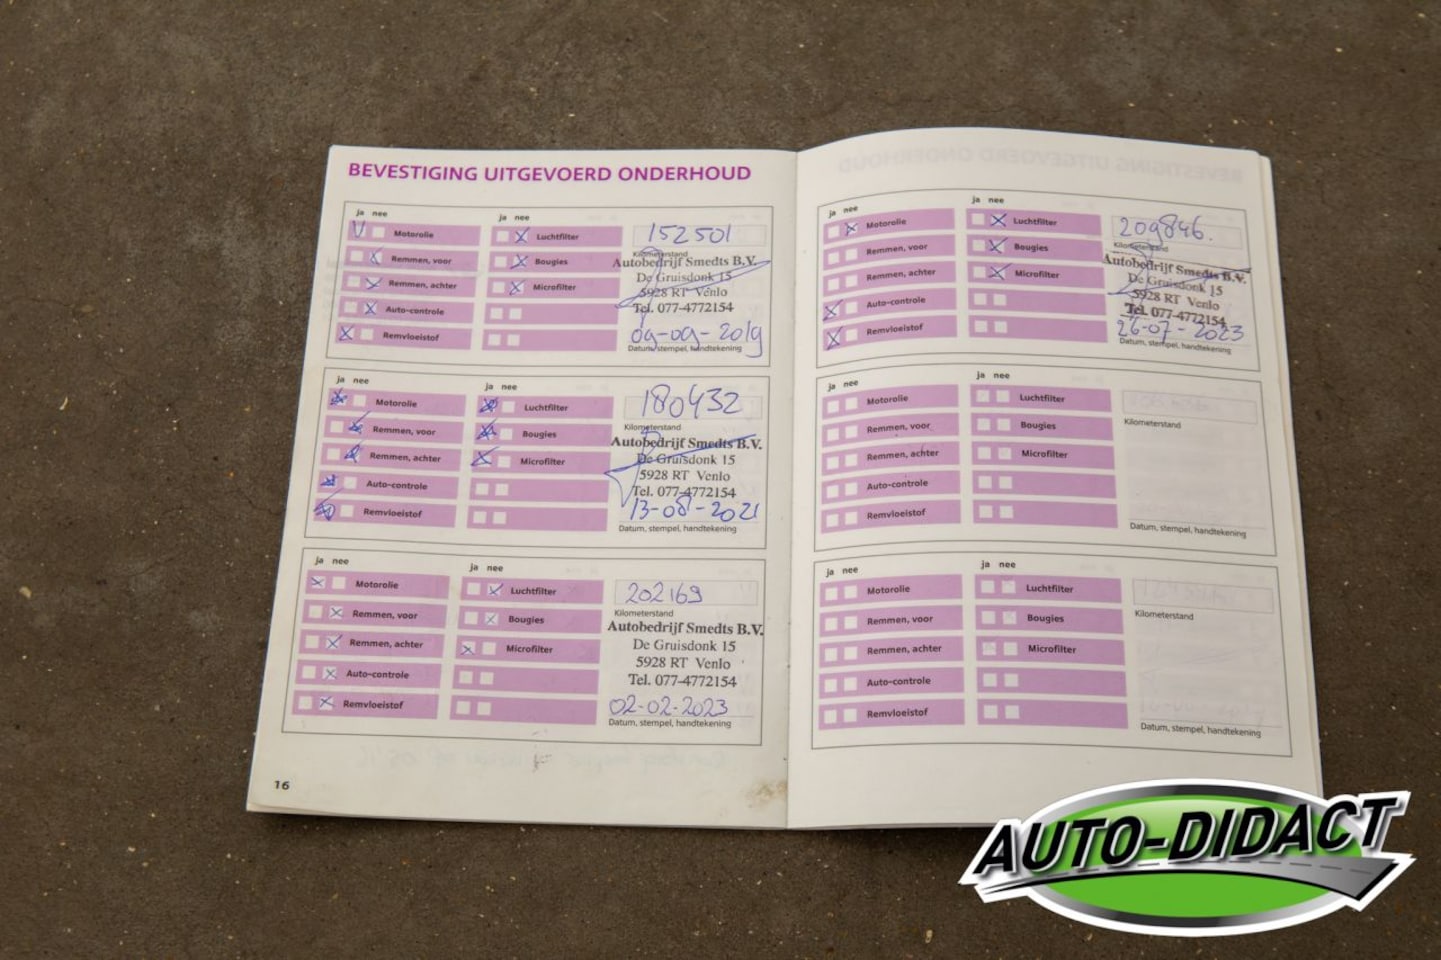 BEVESTIGING UITGEVOERD ONDERHOUD
ja nee
Motorolie
Remmen, voor
Remmen, achter
Auto-controle
Remvloeistof
ja nee
Luchtfilter
Bougies
Microfilter
152501
Kilometerstand
Autobedrijf Smedts B.V.
De Gruisdonk 15
5928 RT Venlo
Tel. 077-4772154
09-09-2019
Datum, stempel, handtekening
ja nee
Motorolie
Remmen, voor
Remmen, achter
Auto-controle
Remvloeistof
ja nee
Luchtfilter
Bougies
Microfilter
180432
Kilometerstand
Autobedrijf Smedts B.V.
De Gruisdonk 15
5928 RT Venlo
Tel. 077-4772154
13-08-2021
Datum, stempel, handtekening
ja nee
Motorolie
Remmen, voor
Remmen, achter
Auto-controle
Remvloeistof
ja nee
Luchtfilter
Bougies
Microfilter
202169
Kilometerstand
Autobedrijf Smedts B.V.
De Gruisdonk 15
5928 RT Venlo
Tel. 077-4772154
02-02-2023
Datum, stempel, handtekening
16
ja nee
Motorolie
Remmen, voor
Remmen, achter
Auto-controle
Remvloeistof
ja nee
Luchtfilter
Bougies
Microfilter
209846.
Kilometerstand
Autobedrijf Smedts B.V.
De Gruisdonk 15
5928 RT Venlo
Tel. 077-4772154
26-07-2023
Datum, stempel, handtekening
ja nee
Motorolie
Remmen, voor
Remmen, achter
Auto-controle
Remvloeistof
ja nee
Luchtfilter
Bougies
Microfilter
Kilometerstand
Datum, stempel, handtekening
ja nee
Motorolie
Remmen, voor
Remmen, achter
Auto-controle
Remvloeistof
ja nee
Luchtfilter
Bougies
Microfilter
Kilometerstand
Datum, stempel, handtekening
AUTO-DIDACT